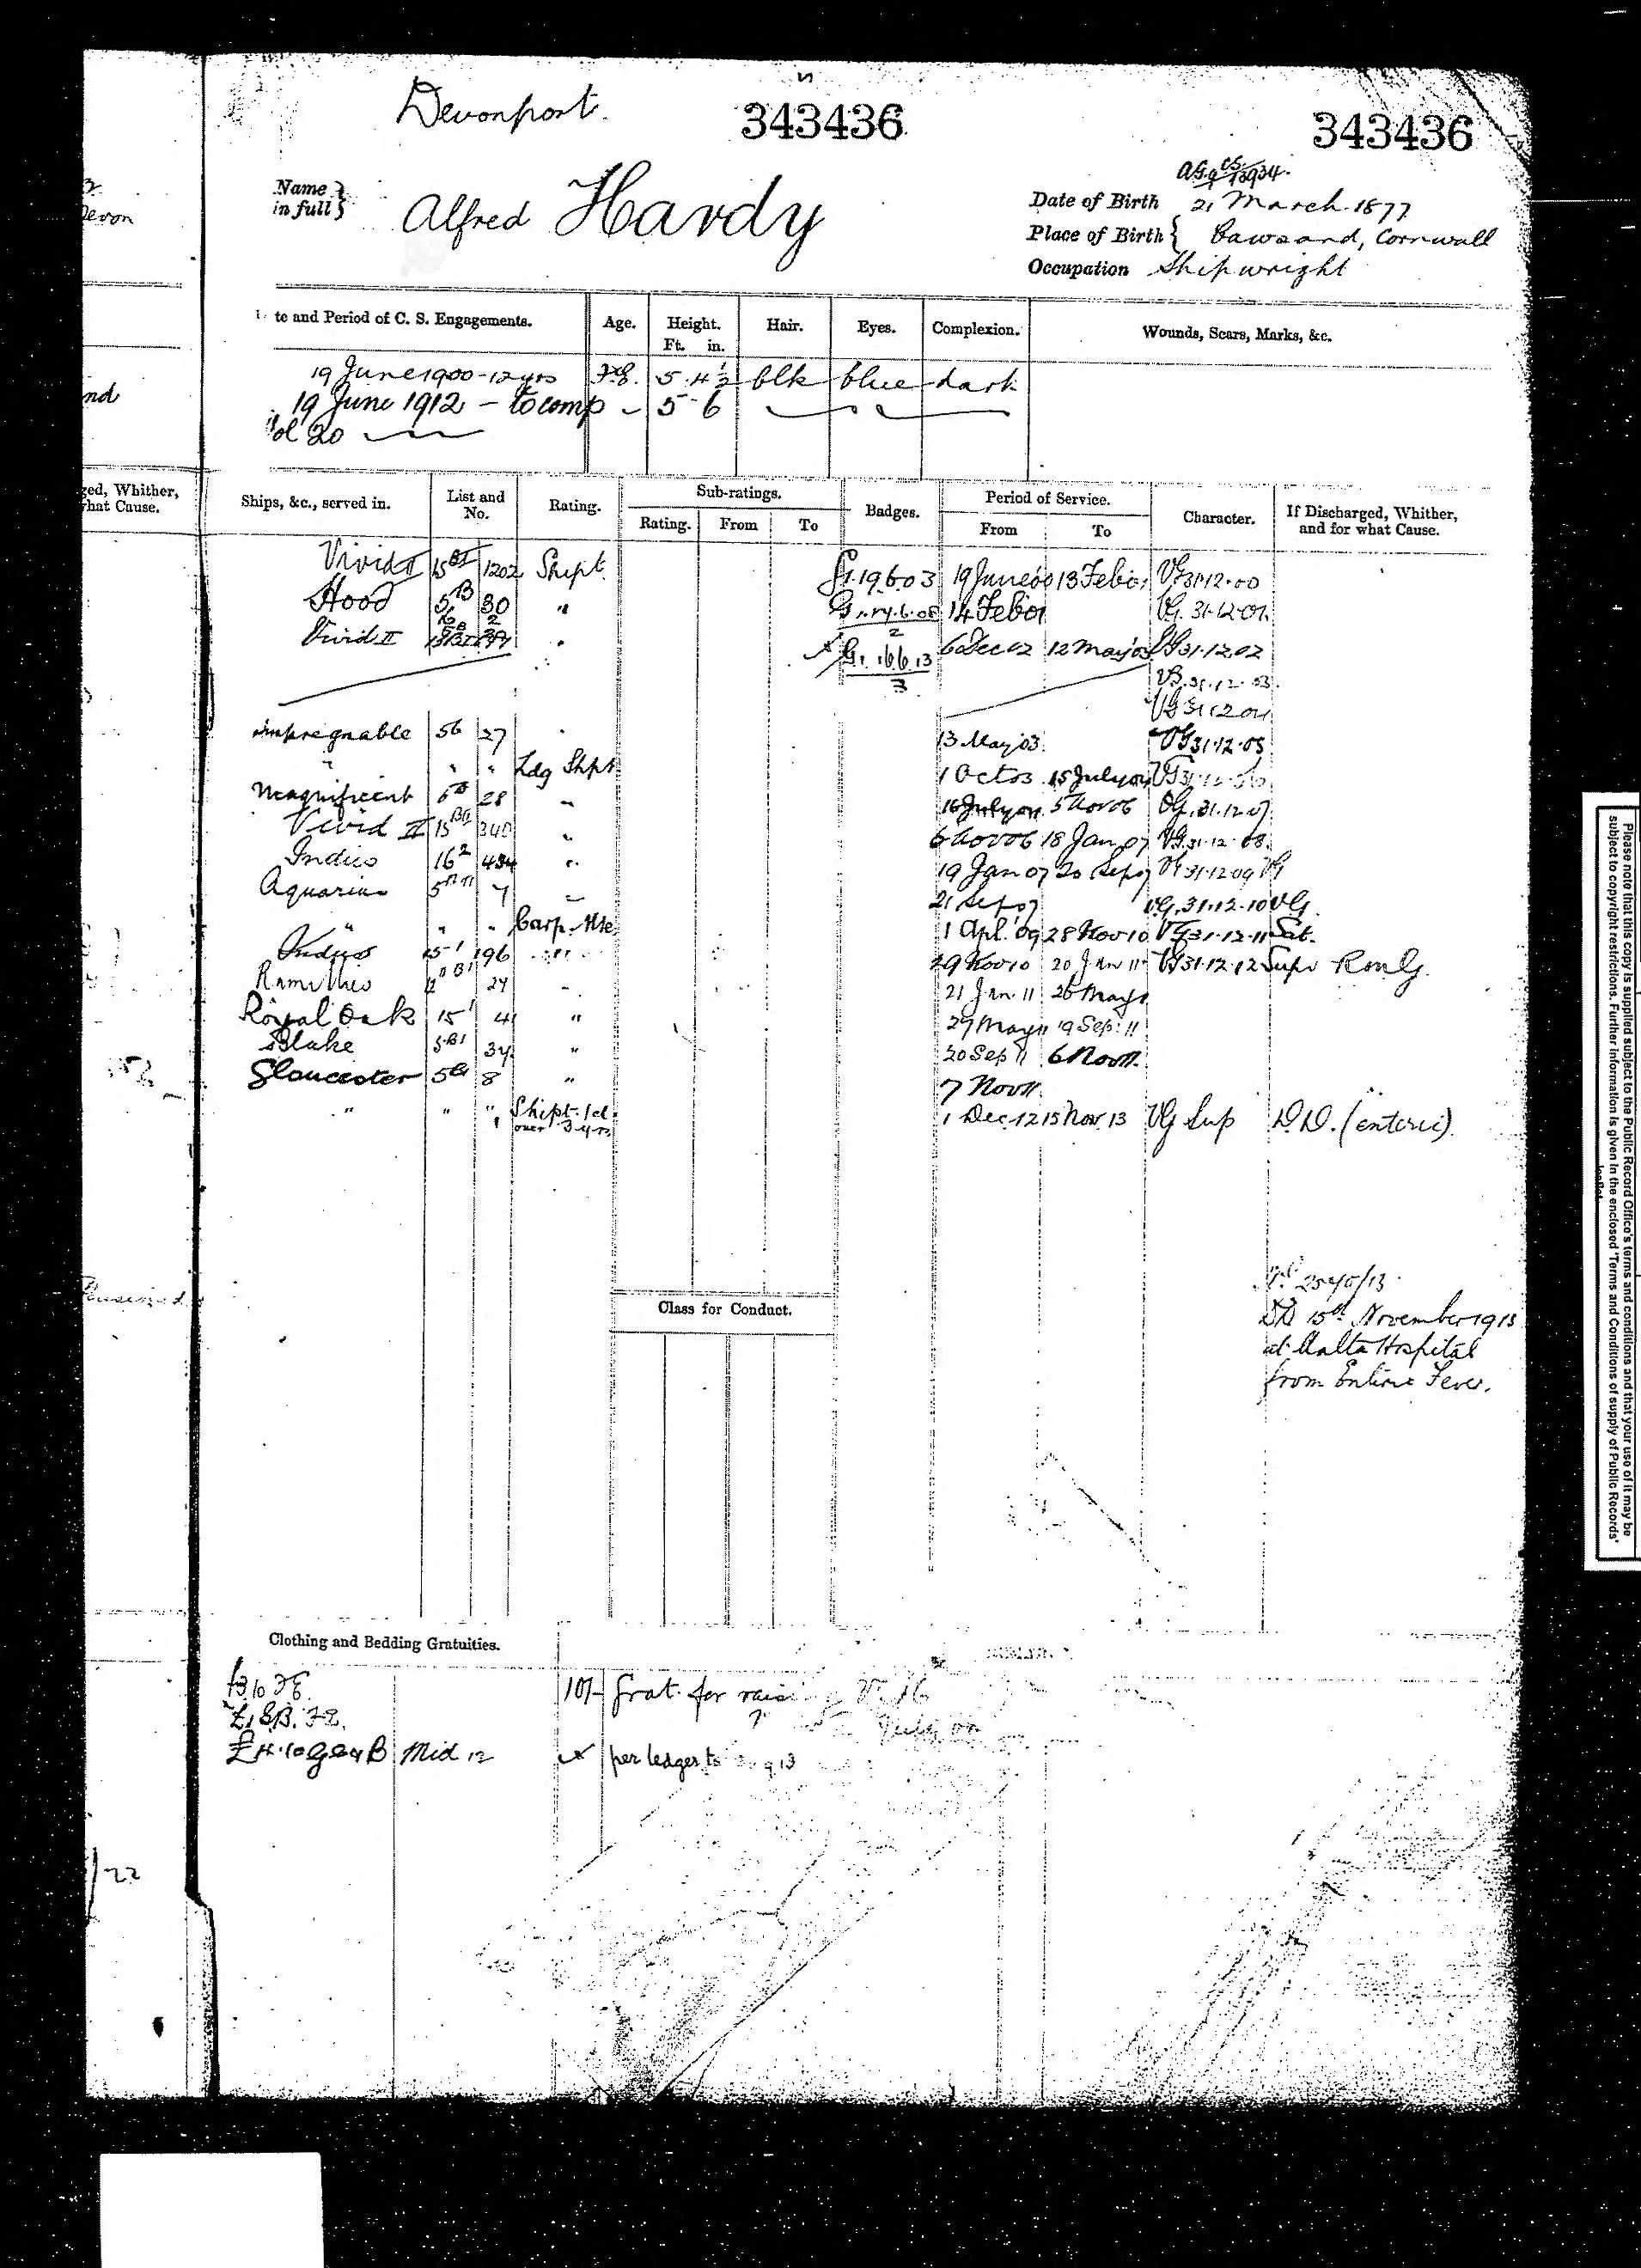 Devonport.
343436
343436
Name in full } Alfred Hardy
Date of Birth 21 March 1877
Place of Birth } Cawsand, Cornwall
Occupation Shipwright
Devon
te and Period of C. S. Engagements. Age. Height. Ft. in. Hair. Eyes. Complexion. Wounds, Scars, Marks, &c.
19 June 1900 - 12 yrs 5 . 4½ blk blue dark
19 June 1912 - to comp 5 - 6
Vol 20
nd
ged, Whither, what Cause.
Ships, &c., served in. List and No. Rating. Sub-ratings. Rating. From To Badges. Period of Service. From To Character. If Discharged, Whither, and for what Cause.
Vivid II 15 1202 Shpt. G1.19.6.03 19 June 00 13 Feb 01 VG 31.12.00
Hood 5 30 " 14 Feb 01 VG. 31.12.01
Vivid II " 6 Dec 02 12 May 03 VG 31.12.02
G. 16.6.13
3
VG. 31.12.03.
VG 31.12.04
Impregnable 56 27 13 May 03. VG 31.12.05
" " " Ldg Shpt 1 Oct 03 15 July 04
Magnificent 28 16 July 04 5 Nov 06 VG. 31.12.07
Vivid II 15 340 6 Nov 06 18 Jan 07 VG. 31.12.08.
Indus 16² 434 19 Jan 07 20 Sep 07 VG 31.12.09 VG
Aquarius 7 21 Sep 07 VG. 31.12.10 VG.
" " " Carp. Mte 1 Apl. 09 28 Nov 10 VG 31.12.11 Sat.
Indus 15¹ 196 29 Nov 10 20 Jan 11 VG 31.12.12 Supr RmG.
Ramillies 24 21 Jan. 11 26 May 11
Royal Oak 15¹ 41 " 27 May 11 19 Sep: 11
Blake 34 " 20 Sep 11 6 Nov 11.
Gloucester 8 " 7 Nov 11.
" " " Shipt. 1 cl. over 3 yrs 1 Dec. 12 15 Nov. 13 VG Sup D.D. (enteric).
DD 15th November 1913
at Malta Hospital
from Enteric Fever.
Class for Conduct.
Clothing and Bedding Gratuities.
10/- Grat. for
July
Mid 12 per ledger to 13
/22
Please note that this copy is supplied subject to the Public Record Office's terms and conditions and that your use of it may be
subject to copyright restrictions. Further information is given in the enclosed 'Terms and Conditions of supply of Public Records'
leaflet